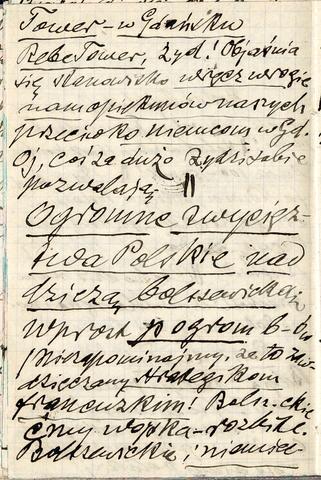 Tower - w Gdańsku
Rebe Tower, Żyd! Objaśnia
się stanowisko wręcz wrogie
nam opiekunów naszych
przeciwko niemcom w Gd.
Oj, coś za dużo Żydzi sobie
pozwalają =
Ogromne zwycięz-
twa Polskie nad
dziczą bolszewicką
wprost pogrom b-ów
/ nie zapominajmy, że to zaw-
dzięczamy strategikom
francuzkim! Bolsz.ckie
ćmy wojska - rozbite.
Bolszewickie, i niemiec-